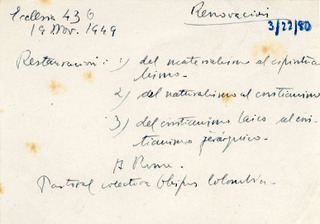 Ecclesia 436
19 Nov. 1949
Renovación
3/22/80
Restauración: 1) del materialismo al espiritua
lismo.
2) del naturalismo al cristianismo
3) del cristianismo laico al cris
tianismo jerárquico.
A Roma.
Pastoral colectiva Obispos Colombia.